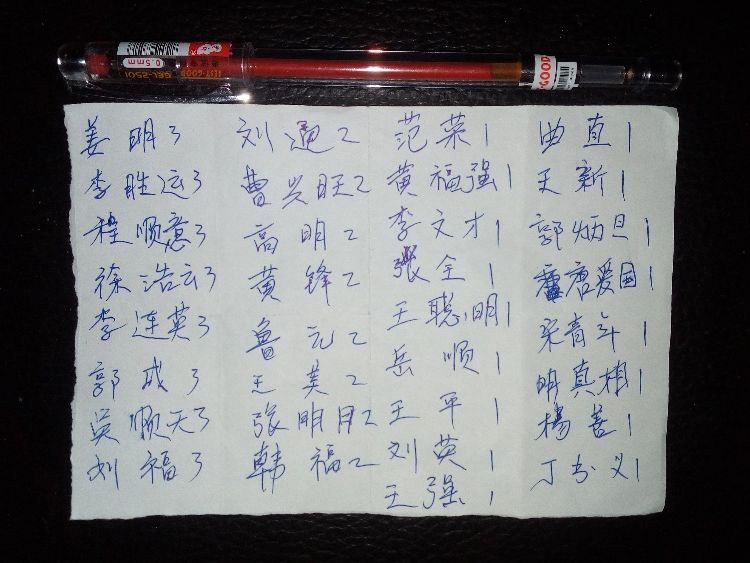 BEST-GOOD
GEL-2501
0.5mm
GOOD
姜明3 刘通2 范菜1 曲直1
李胜运3 曹兴旺2 黄福强1 王新1
程顺意3 高明2 李文才1 郭炳旦1
徐浩云3 黄锋2 張全1 唐爱国1
李连英3 鲁元2 王聪明1 宋青年1
郭成3 王美2 岳顺1 明真相1
吴顺天3 张明月2 王平1 楊善1
刘福3 韩福2 刘英1 丁书义1
王强1